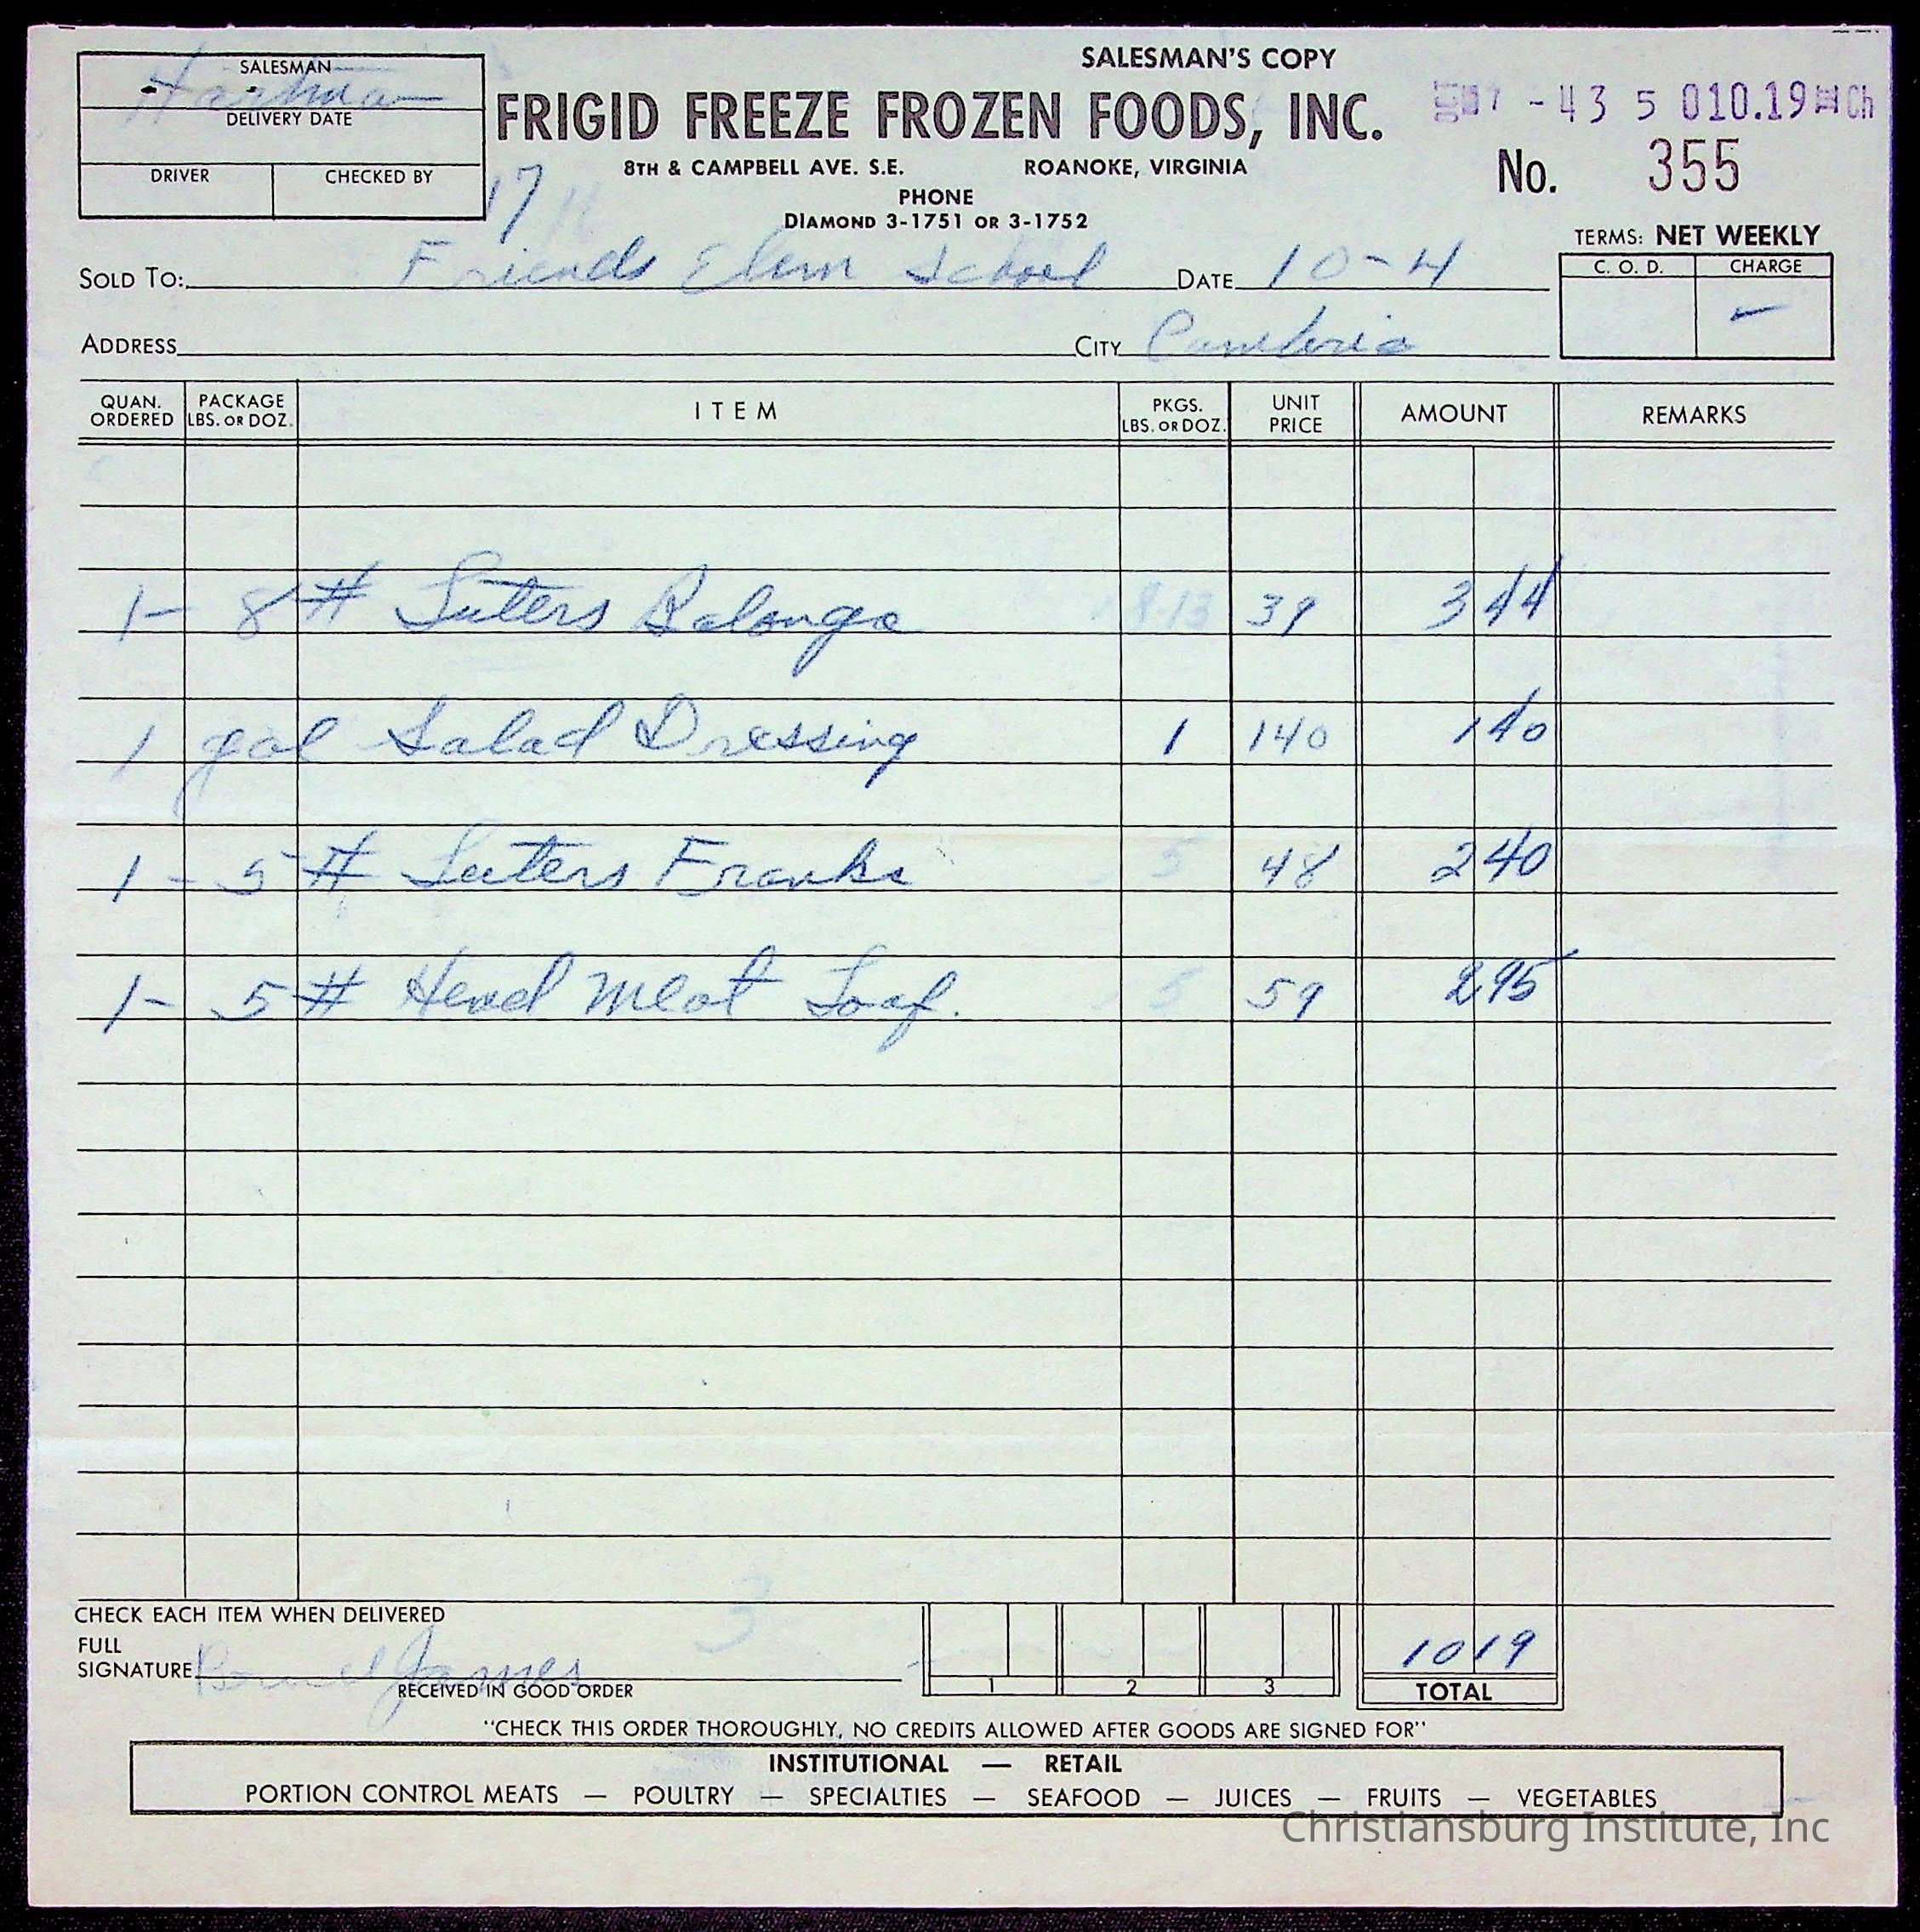 SALESMAN'S COPY
SALESMAN
Hartman
DELIVERY DATE
DRIVER CHECKED BY
FRIGID FREEZE FROZEN FOODS, INC.
7 - 43 5 010.19 Ch
8TH & CAMPBELL AVE. S.E. ROANOKE, VIRGINIA
No. 355
PHONE
DIAMOND 3-1751 OR 3-1752
17
TERMS: NET WEEKLY
C. O. D. CHARGE
SOLD TO: Friends Elem School DATE 10-4
ADDRESS CITY Cambria
QUAN. ORDERED PACKAGE LBS. OR DOZ. ITEM PKGS. LBS. OR DOZ. UNIT PRICE AMOUNT REMARKS
1- 8 # Luters Balonga 8-13 39 3 44
1 gal Salad Dressing 1 140 1 40
1 - 5 # Luters Franks 5 48 2 40
1- 5 # Meat Loaf. 5 59 2 95
CHECK EACH ITEM WHEN DELIVERED
3
FULL
SIGNATURE James
RECEIVED IN GOOD ORDER
1 2 3
10 19
TOTAL
"CHECK THIS ORDER THOROUGHLY, NO CREDITS ALLOWED AFTER GOODS ARE SIGNED FOR"
INSTITUTIONAL — RETAIL
PORTION CONTROL MEATS — POULTRY — SPECIALTIES — SEAFOOD — JUICES — FRUITS — VEGETABLES
Christiansburg Institute, Inc